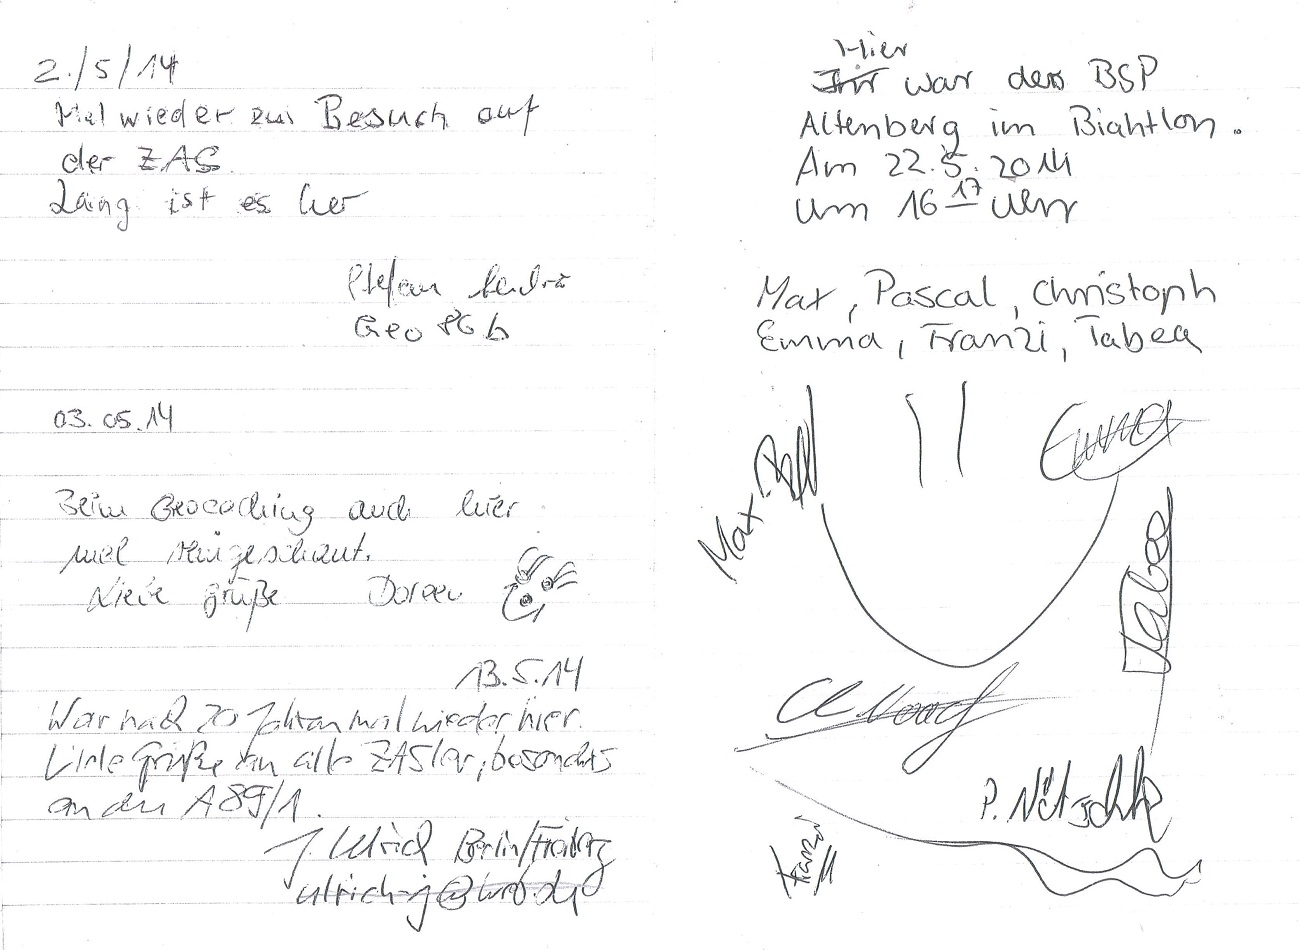 2./5/14
Mal wieder zu Besuch auf
der ZAS
Lang ist es her
Stefan
Geo 86 b
03.05.14
Beim Geocaching auch hier
mal reingeschaut.
Liebe grüße Doreen
13.5.14
War nach 20 Jahren mal wieder hier.
Liebe Grüße an alle ZASler, besonders
an die A89/1.
J. Ulrich Berlin/Freiberg
ulrich-j@web.de
Hier
war der BSP
Altenberg im Biahtlon.
Am 22.5.2014
um 16 17 Uhr
Max, Pascal, Christoph
Emma, Franzi, Tabea
Max
Emma
Tabea
P. Nitzschke
Franzi